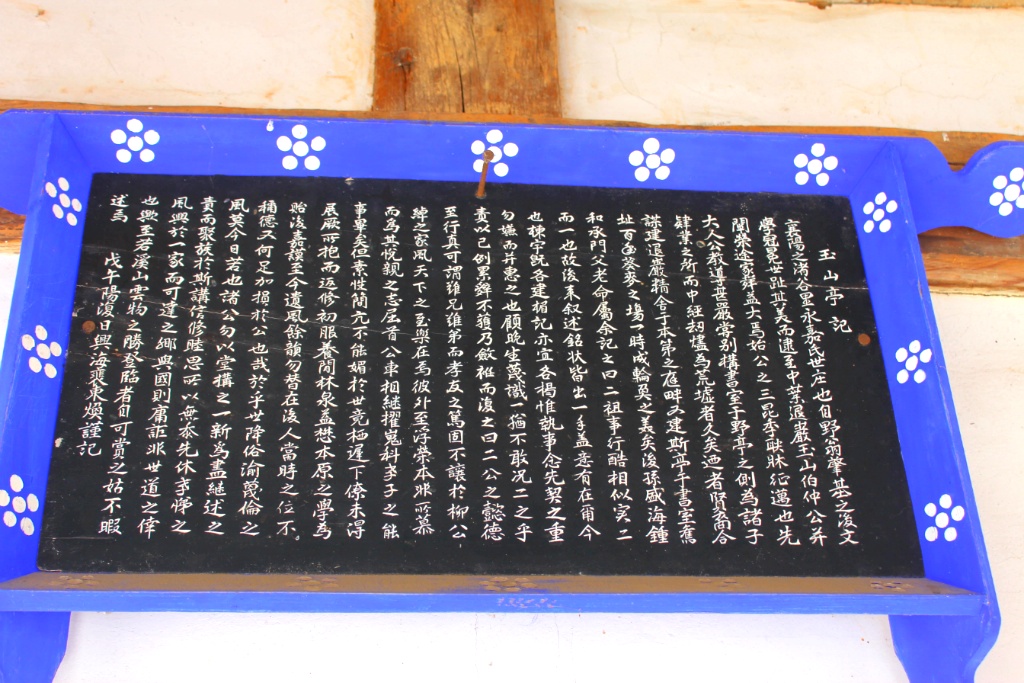 玉山亭記
襄陽之渚谷里永嘉氏世庄也自野翁肇基之後文
學冠冕世趾其美而逮至中葉退巖玉山伯仲公幷
闡榮途家聲益大焉始公之三昆季
大人公敎導甚嚴常別構書室于野亭之側爲諸子
肄業之所而中經刼燼爲荒墟者久矣迺者賢裔合
謀建退巖精舍于本第之庭畔又建斯亭于書室舊
址百年葵麥之場一時成輪奐之美矣後孫盛海鍾
和承門父老命屬余記之曰二祖事行酷相似实二
而一也故後來叙述銘狀皆出一手盖意有在爾今
也棟宇旣各建楣記亦宜各揭惟執事念先契之重
勿嫌而幷惠之也顧晩生蔑識一猶不敢况二之乎
責以已例累辭不獲乃斂袵而復之曰二公之懿德
至行眞可謂難兄難弟而孝友之篤固不讓於柳公
綽之家風天下之至樂在焉彼外至浮榮本非所慕
而爲其悅親之志屈首公車相繼擢嵬科孝子之能
事畢矣但素性簡亢不能媚於世竟栖遲下僚未得
展厥所抱而返修初服養閒林泉益懋本原之學爲
貽後嘉謨至今遺風餘韻勿替在後人當時之位不
稱德又何足加損於公也哉於乎世降俗渝蔑倫之
風莫今日若也諸公勿以堂構之一新爲盡繼述之
責而聚族於斯講信修睦思所以無忝先休孝悌之
風興於一家而可達之鄕與國則庸詎非世道之倖
也歟至若溪山雲物之勝登臨者自可賞之姑不暇
述焉
戊午陽復日興海裵東煥謹記